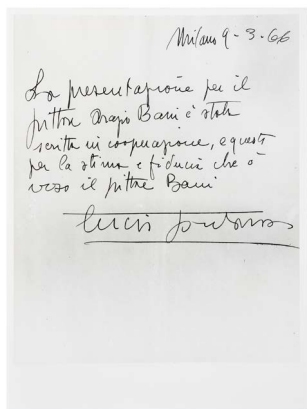 Milano 9-3-66
La presentazione per il
pittore Orazio Bani è stata
scritta in cooperazione, e questo
per la stima e fiducia che ò
verso il pittore Bani
Lucio Fontana